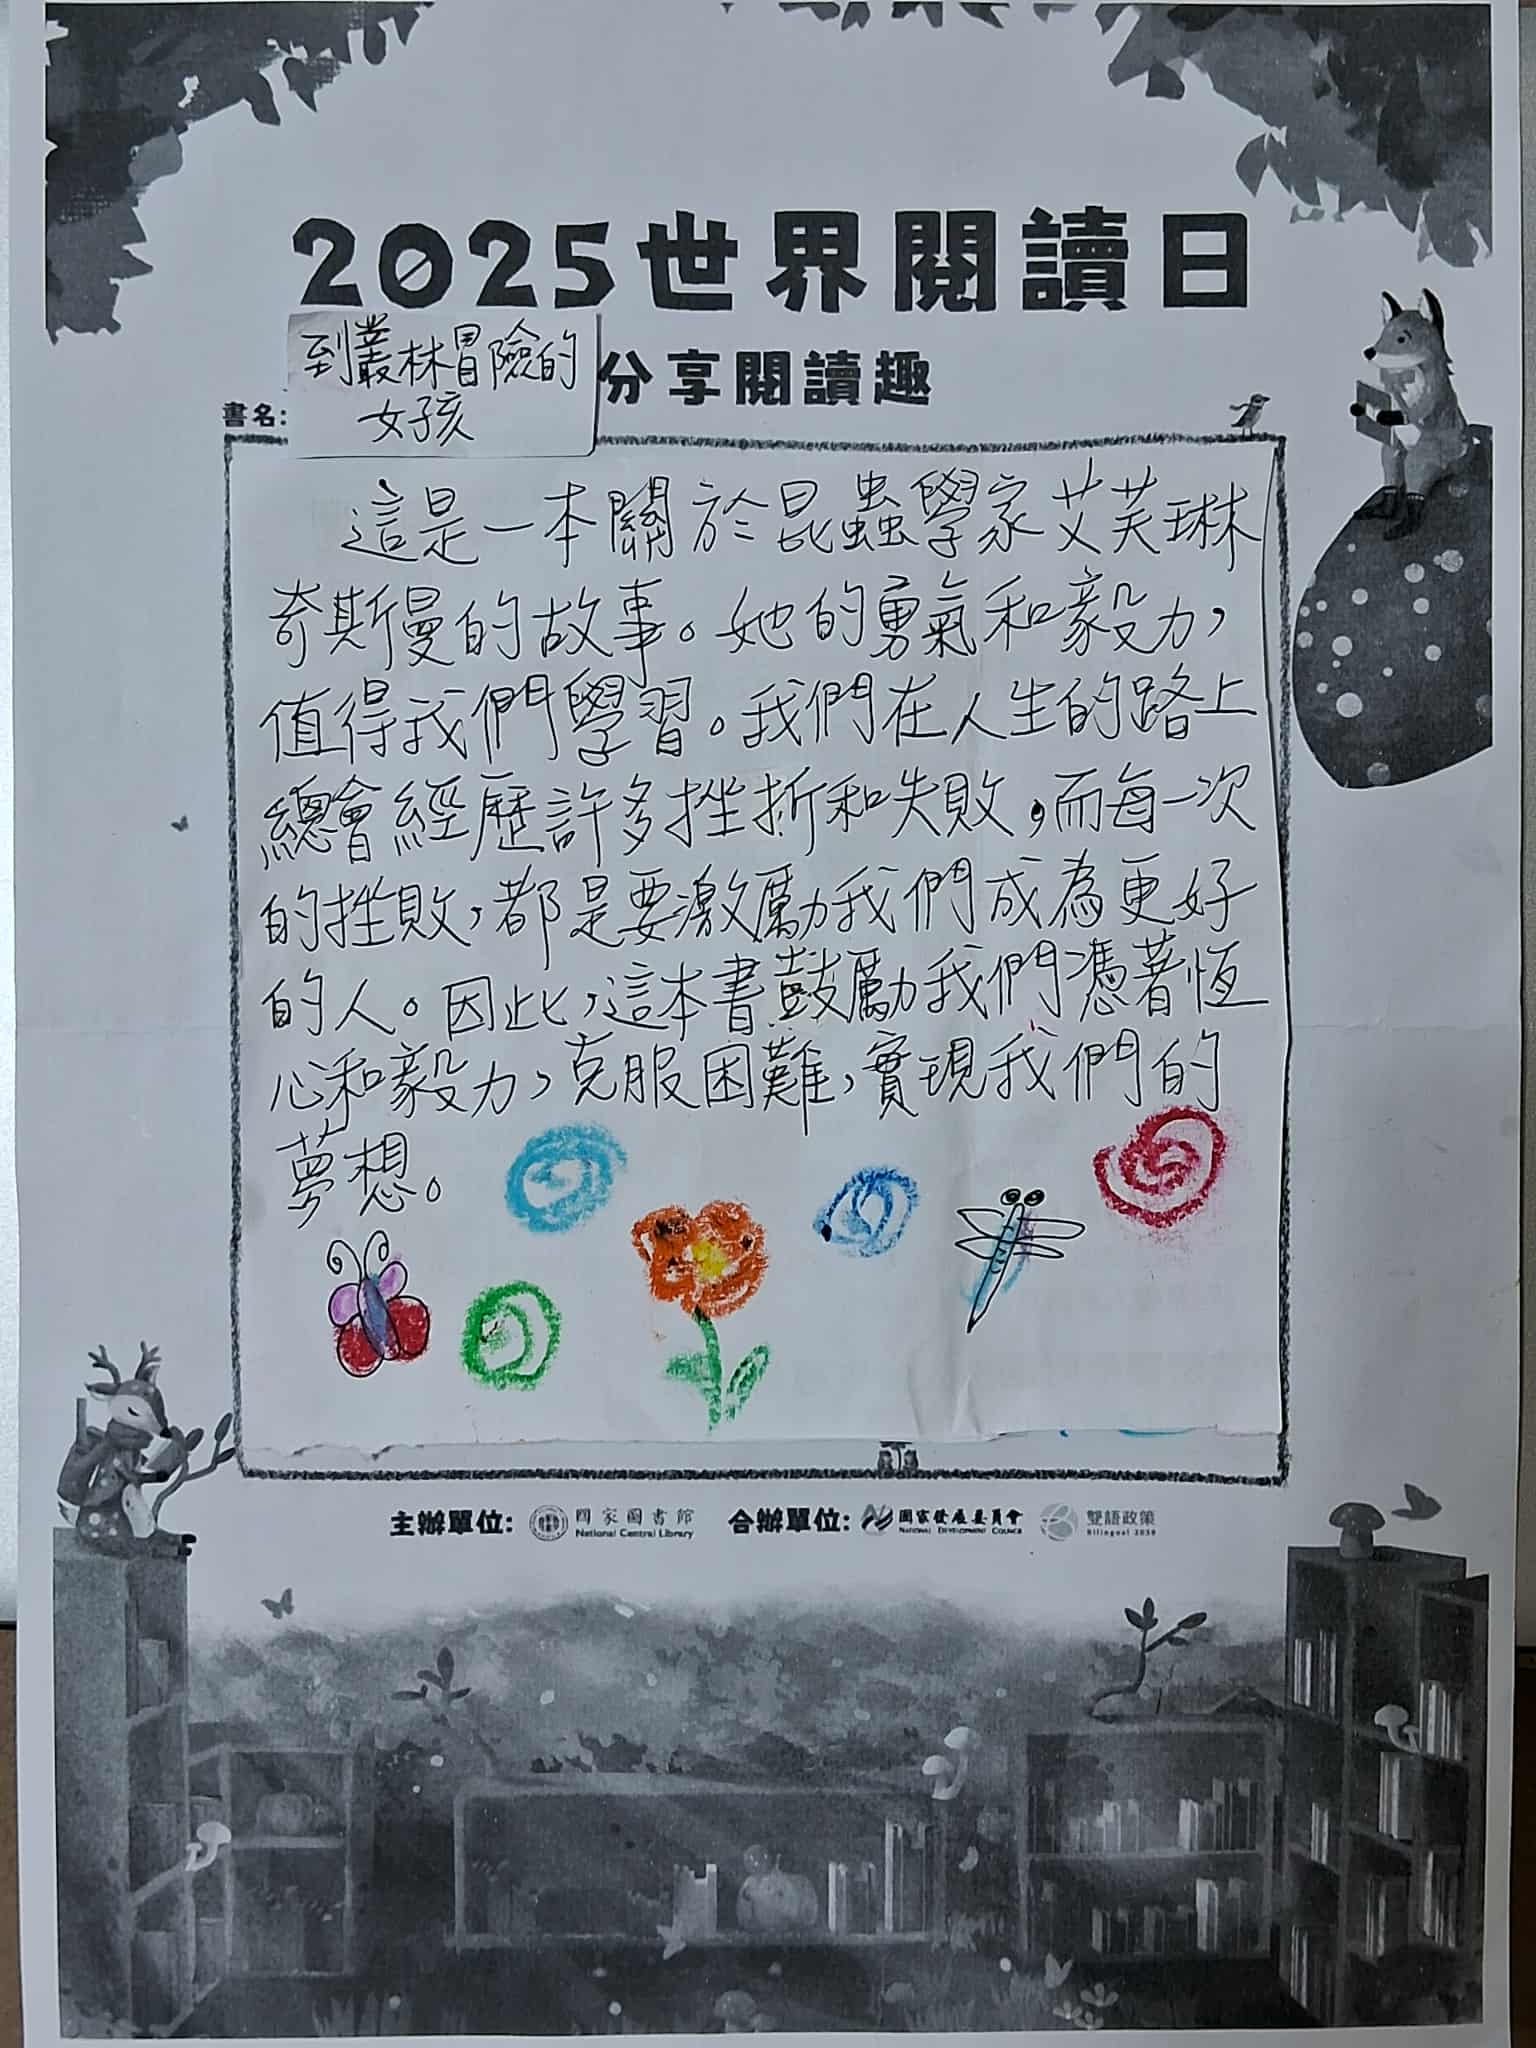 2025世界閱讀日
分享閱讀趣
書名:
到叢林冒險的
女孩
這是一本關於昆蟲學家艾芙琳
奇斯曼的故事。她的勇氣和毅力,
值得我們學習。我們在人生的路上
總會經歷許多挫折和失敗,而每一次
的挫敗,都是要激勵我們成為更好
的人。因此,這本書鼓勵我們憑著恆
心和毅力,克服困難,實現我們的
夢想。
主辦單位: 國家圖書館 National Central Library 合辦單位: 國家發展委員會 National Development Council 雙語政策 Bilingual 2030